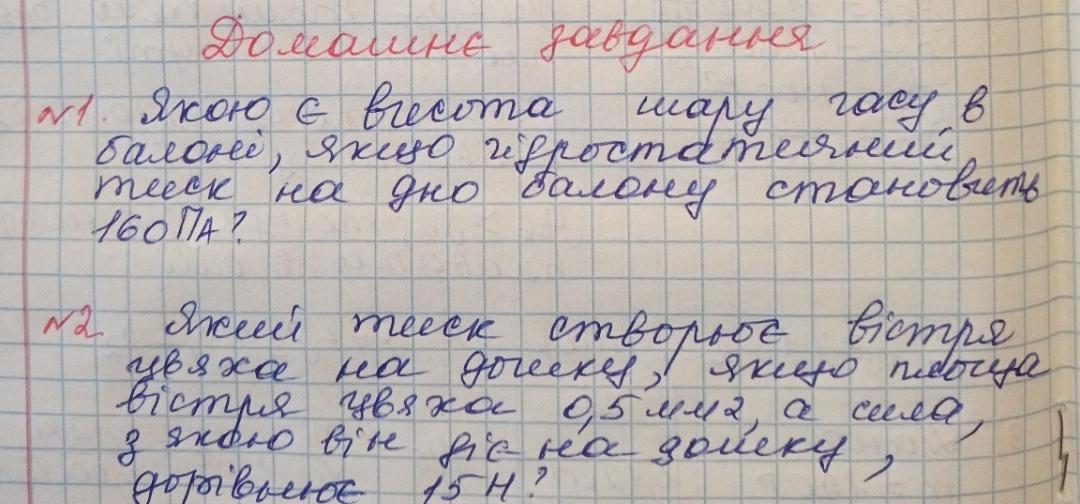 Домашнє завдання
№1. Якою є висота шару гасу в
балоні, якщо гідростатичний
тиск на дно балону становить
160 Па?
№2 Який тиск створює вістря
цвяха на дошку, якщо площа
вістря цвяха 0,5 мм2, а сила,
з якою він діє на дошку,
дорівнює 15 Н?